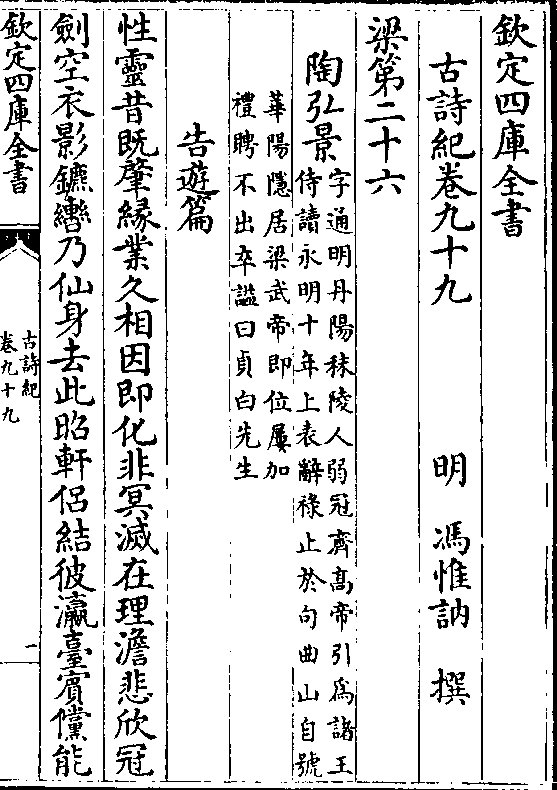 欽定四庫全書
古詩紀卷九十九 明 馮惟訥 撰
梁第二十六
陶弘景字通明丹陽秣陵人弱冠齊髙帝引為諸王
侍讀永明十年上表辭祿止於句曲山自號
華陽隱居梁武帝即位屢加
禮聘不出卒諡曰貞白先生
告遊篇
性靈昔既肇緣業久相因即化非冥滅在理澹悲欣冠
劍空衣影鑣轡乃仙身去此昭軒侶結彼瀛臺賓儻能
欽定四庫全書
古詩紀
卷九十九
一